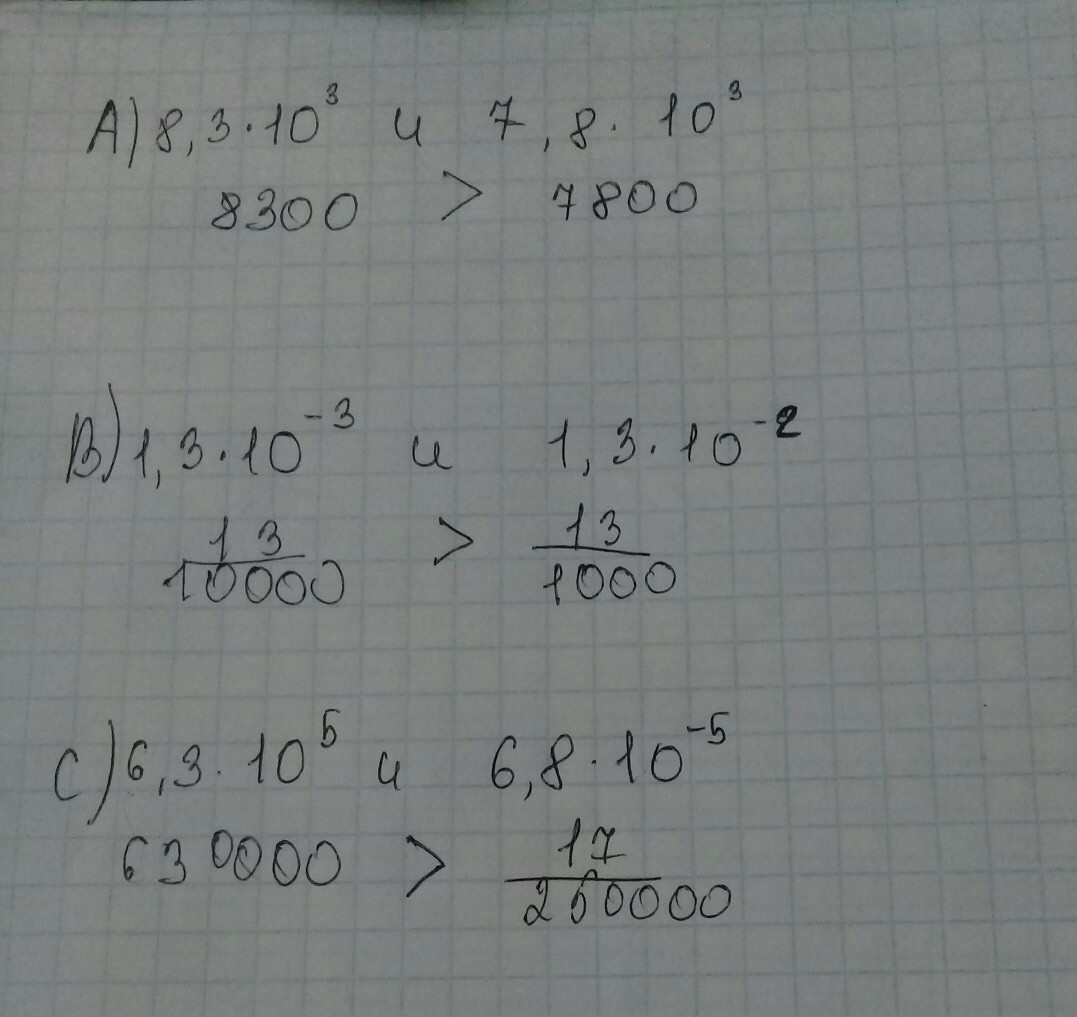 A) 8,3·10³ и 7,8·10³
8300 > 7800
B) 1,3·10⁻³ и 1,3·10⁻²
13/10000 > 13/1000
C) 6,3·10⁵ и 6,8·10⁻⁵
630000 > 17/250000